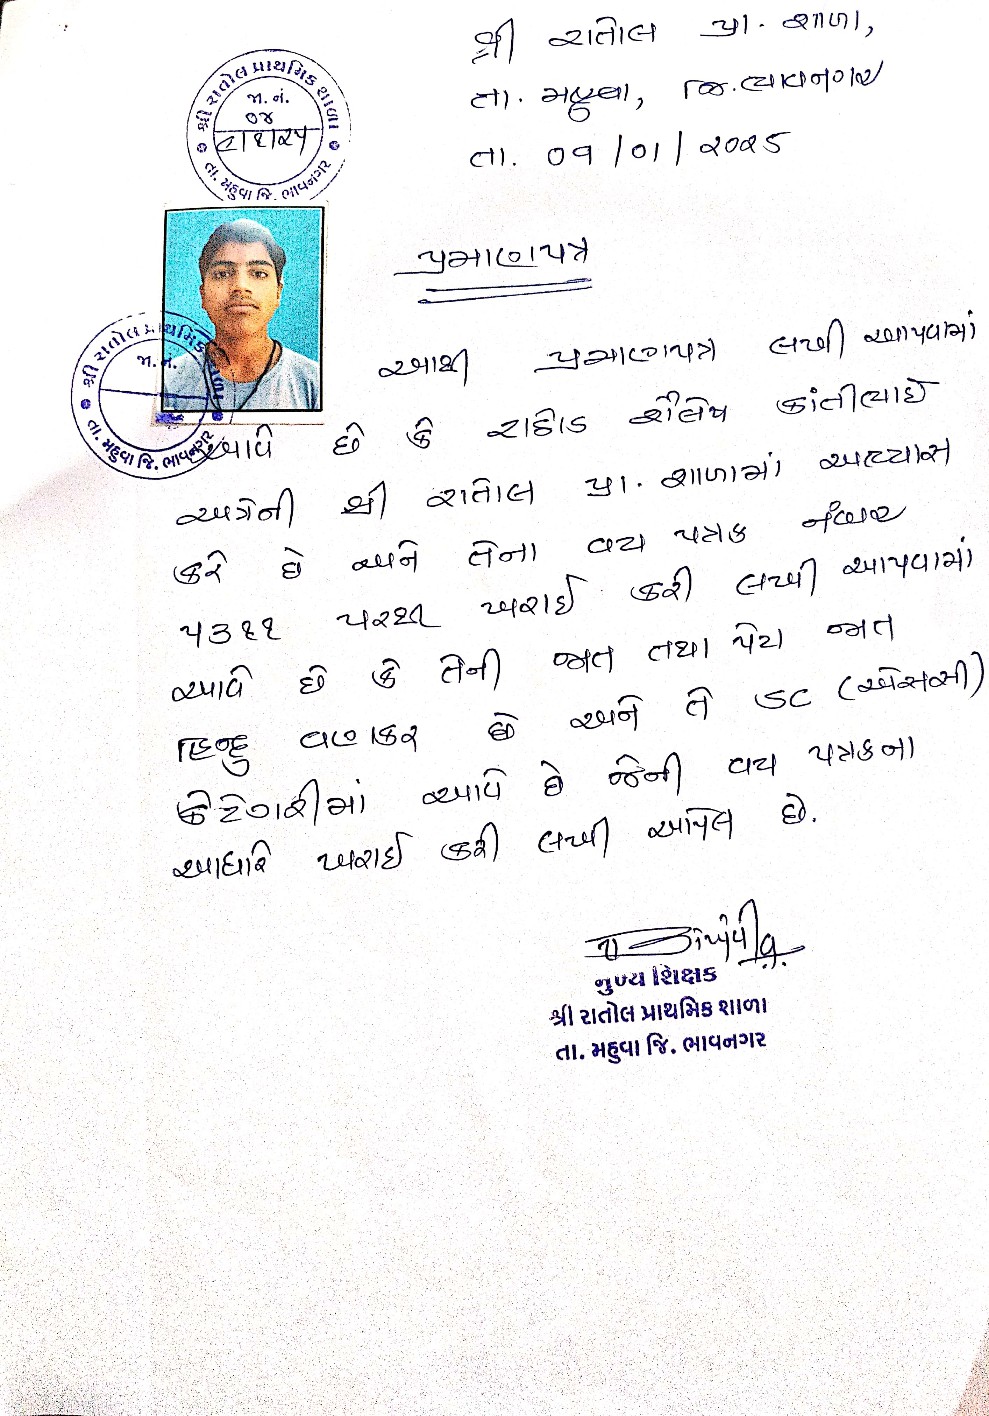 શ્રી રાતોલ પ્રા. શાળા,
તા. મહુવા, જિ. ભાવનગર
તા. ૦૧/૦૧/૨૦૨૫
શ્રી રાતોલ પ્રાથમિક શાળા
જા. નં.
૦૪
તા. મહુવા જિ. ભાવનગર
પ્રમાણપત્ર
શ્રી રાતોલ પ્રાથમિક શાળા
જા. નં.
તા. મહુવા જિ. ભાવનગર
આથી પ્રમાણપત્ર લખી આપવામાં
આવે છે કે રાઠોડ શૈલેષ કાંતીભાઈ
અત્રેની શ્રી રાતોલ પ્રા. શાળામાં અભ્યાસ
કરે છે અને તેના વય પત્રક નંબર
૫૩૧૧ પરથી ખરાઈ કરી લખી આપવામાં
આવે છે કે તેની જાત તથા પેટા જાત
હિન્દુ વણકર છે અને તે SC (એસસી)
કેટેગરીમાં આવે છે જેની વય પત્રકના
આધારે ખરાઈ કરી લખી આપેલ છે.
મુખ્ય શિક્ષક
શ્રી રાતોલ પ્રાથમિક શાળા
તા. મહુવા જિ. ભાવનગર